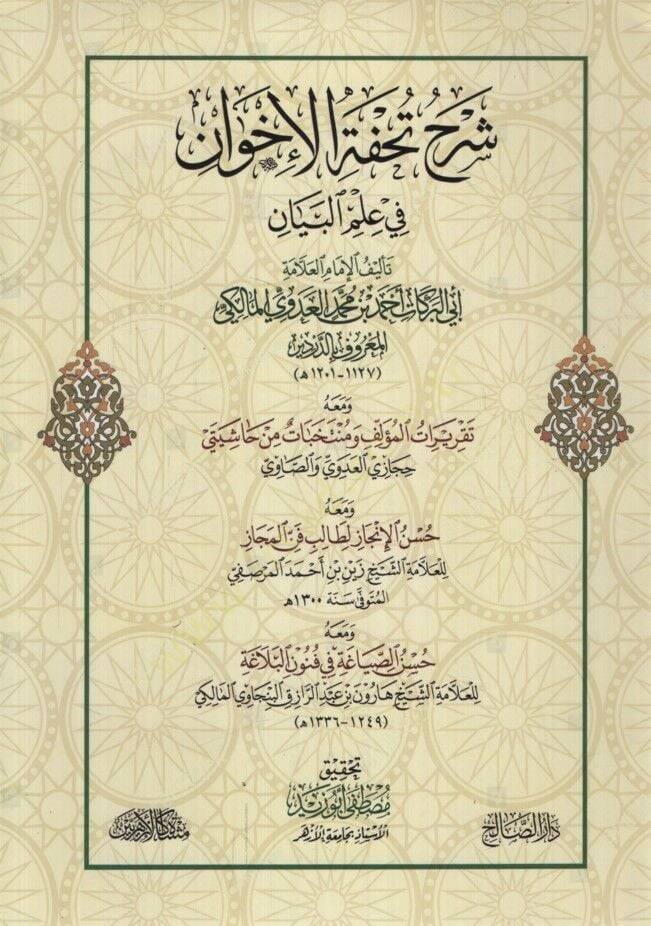 شَرْحُ تُحْفَةِ الْإِخْوَانِ
فِي عِلْمِ الْبَيَانِ
تَأْلِيفُ الْإِمَامِ الْعَلَّامَةِ
أَبِي الْبَرَكَاتِ أَحْمَدَ بْنِ مُحَمَّدٍ الْعَدَوِيِّ الْمَالِكِيِّ
الْمَعْرُوفِ بِالدَّرْدِيرِ
(١١٢٧-١٢٠١ هـ)
وَمَعَهُ
تَقْرِيرَاتُ الْمُؤَلِّفِ وَمُنْتَخَبَاتٌ مِنْ حَاشِيَتَيْ
حِجَازِي الْعَدَوِيِّ وَالصَّاوِيِّ
وَمَعَهُ
حُسْنُ الْإِنْجَازِ لِطَالِبِ فَنِّ الْمَجَازِ
لِلْعَلَّامَةِ الشَّيْخِ زَيْنِ بْنِ أَحْمَدَ الْمَرْصَفِيِّ
الْمُتَوَفَّى سَنَةَ ١٣٠٠ هـ
وَمَعَهُ
حُسْنُ الصِّيَاغَةِ فِي فُنُونِ الْبَلَاغَةِ
لِلْعَلَّامَةِ الشَّيْخِ هَارُونَ بْنِ عَبْدِ الرَّازِقِ الْبَنْجَاوِيِّ الْمَالِكِيِّ
(١٢٤٩-١٣٣٦ هـ)
تَحْقِيق
مُصْطَفَى أَبُو زَيْد
الْأُسْتَاذُ بِجَامِعَةِ الْأَزْهَرِ
دَارُ الصَّالِحِ